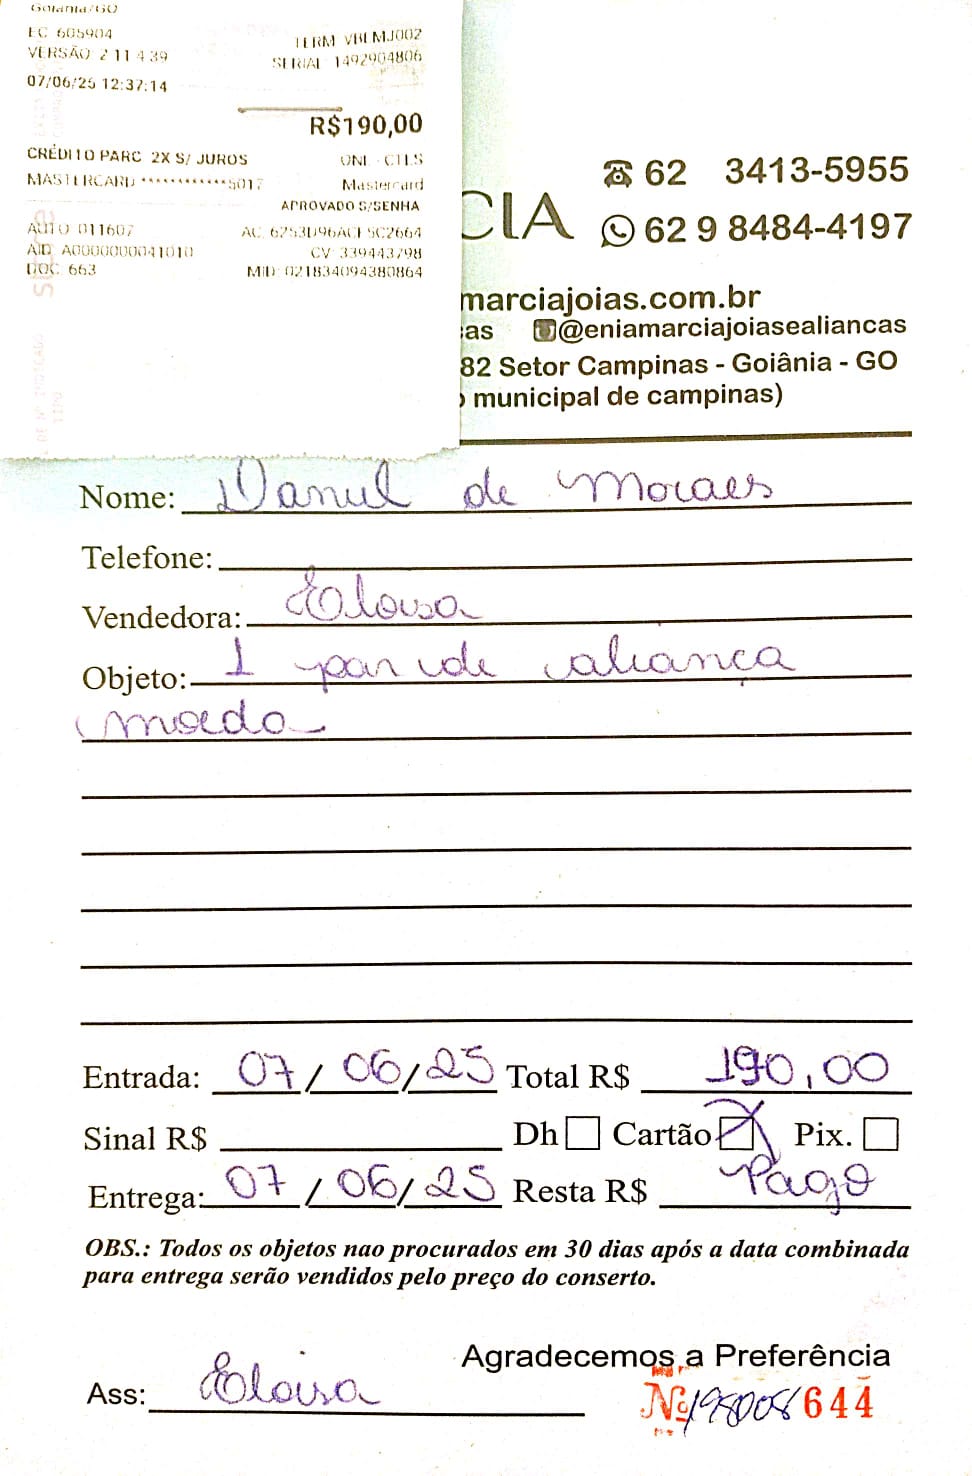 Goiânia/GO
EC 605904 TERM VBEMJ002
VERSÃO 2 11 4 39 SERIAL 1492904806
07/06/25 12:37:14
R$190,00
CRÉDITO PARC 2X S/ JUROS UNI - CTLS
MASTERCARD ************5017 Mastercard
APROVADO S/SENHA
AUTO 011607 AC 6253D96ACF5C2664
AID A0000000041010 CV 339443798
DOC 663 MID 021834094380864
62 3413-5955
CIA 62 9 8484-4197
marciajoias.com.br
as @eniamarciajoiasealiancas
82 Setor Campinas - Goiânia - GO
municipal de campinas)
Nome: Danul de Moraes
Telefone:
Vendedora: Eloisa
Objeto: 1 par de aliança
moeda
Entrada: 07/06/25 Total R$ 190,00
Sinal R$ Dh Cartão X Pix.
Entrega: 07/06/25 Resta R$ Pago
OBS.: Todos os objetos nao procurados em 30 dias após a data combinada
para entrega serão vendidos pelo preço do conserto.
Agradecemos a Preferência
Ass: Eloisa
Nº 644